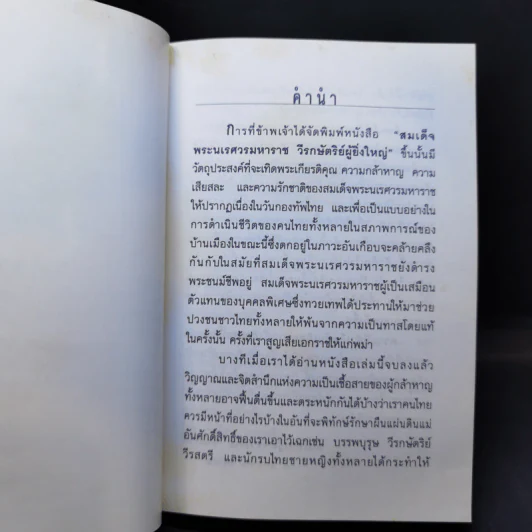 คำนำ
การที่ข้าพเจ้าได้จัดพิมพ์หนังสือ "สมเด็จ
พระนเรศวรมหาราช วีรกษัตริย์ผู้ยิ่งใหญ่" ขึ้นนั้นมี
วัตถุประสงค์ที่จะเทิดพระเกียรติคุณ ความกล้าหาญ ความ
เสียสละ และความรักชาติของสมเด็จพระนเรศวรมหาราช
ให้ปรากฏเนื่องในวันกองทัพไทย และเพื่อเป็นแบบอย่างใน
การดำเนินชีวิตของคนไทยทั้งหลายในสภาพการณ์ของ
บ้านเมืองในขณะนี้ซึ่งตกอยู่ในภาวะอันเกือบจะคล้ายคลึง
กันกับในสมัยที่สมเด็จพระนเรศวรมหาราชยังดำรง
พระชนม์ชีพอยู่ สมเด็จพระนเรศวรมหาราชผู้เป็นเสมือน
ตัวแทนของบุคคลพิเศษซึ่งทวยเทพได้ประทานให้มาช่วย
ปวงชนชาวไทยทั้งหลายให้พ้นจากความเป็นทาสโดยแท้
ในครั้งนั้น ครั้งที่เราสูญเสียเอกราชให้แก่พม่า
บางทีเมื่อเราได้อ่านหนังสือเล่มนี้จบลงแล้ว
วิญญาณและจิตสำนึกแห่งความเป็นเชื้อสายของผู้กล้าหาญ
ทั้งหลายอาจฟื้นตื่นขึ้นและตระหนักกันได้บ้างว่าเราคนไทย
ควรมีหน้าที่อย่างไรบ้างในอันที่จะพิทักษ์รักษาผืนแผ่นดินแม่
อันศักดิ์สิทธิ์ของเราเอาไว้เฉกเช่น บรรพบุรุษ วีรกษัตริย์
วีรสตรี และนักรบไทยชายหญิงทั้งหลายได้กระทำให้